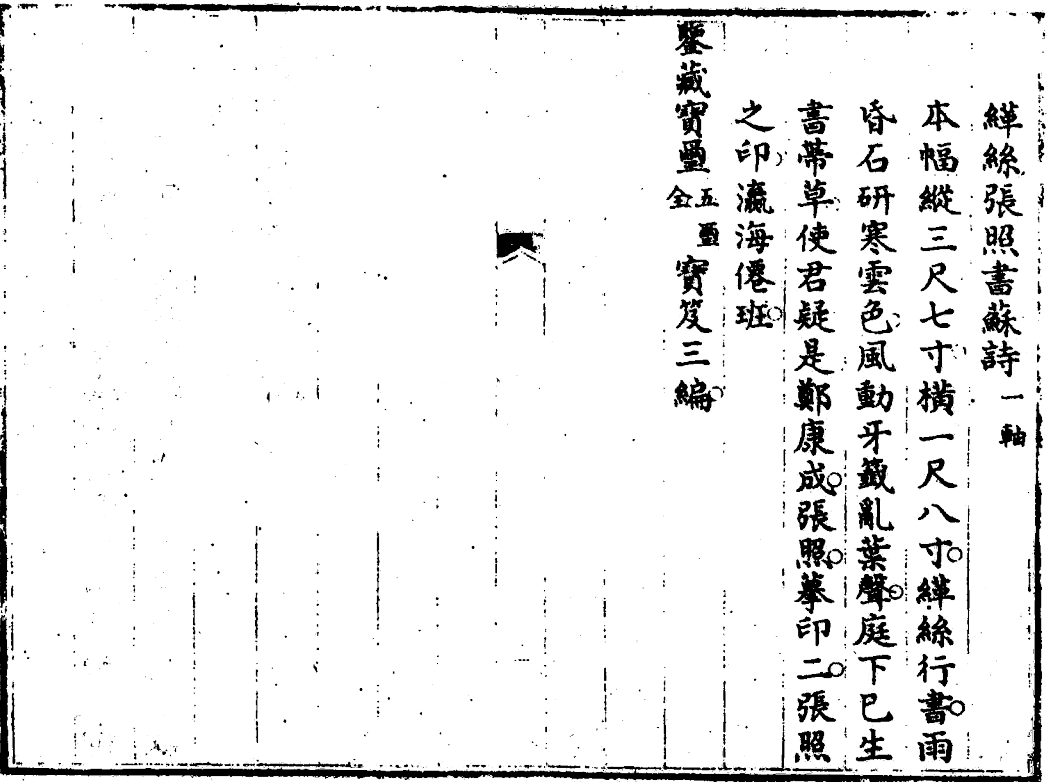 緙絲張照書蘇詩一軸
本幅縱三尺七寸橫一尺八寸緙絲行書雨
昏石硏寒雲色風動牙籤亂葉聲庭下已生
書帶草使君疑是鄭康成張照摹印二張照
之印瀛海僊班
鑒藏寶璽五璽全寶笈三編